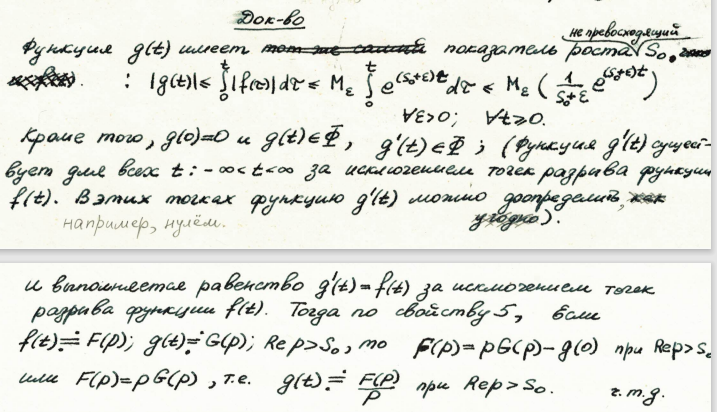 Док-во
не превосходящий
Функция g(t) имеет тот же самый показатель роста S₀.
: |g(t)| ≤ ∫₀ᵗ |f(τ)| dτ ≤ M_ε ∫₀ᵗ e^{(S₀+ε)τ} dτ ≤ M_ε ( 1/(S₀+ε) e^{(S₀+ε)t} )
∀ε>0; ∀t≥0.
Кроме того, g(0)=0 и g(t)∈Φ, g'(t)∈Φ; (Функция g'(t) сущест-
вует для всех t: -∞<t<∞ за исключением точек разрыва функции
f(t). В этих точках функцию g'(t) можно доопределить, как
например, нулём. угодно).
и выполняется равенство g'(t)=f(t) за исключением точек
разрыва функции f(t). Тогда по свойству 5, Если
f(t)≓F(p); g(t)≓G(p); Re p>S₀, то F(p)=pG(p)-g(0) при Re p>S₀
или F(p)=pG(p), т.е. g(t)≓F(p)/p при Re p>S₀. ч.т.д.